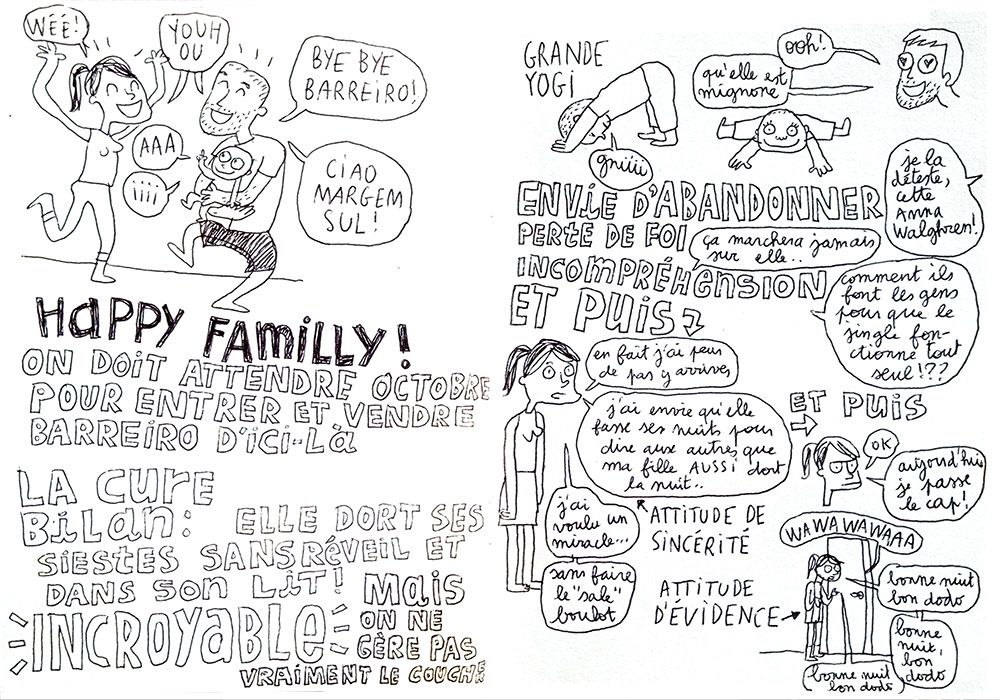 WÉÉ!
YOUH
OU
BYE BYE
BARREIRO!
AAA
iiii
CIAO
MARGEM
SUL!
HAPPY FAMILLY!
ON DOIT ATTENDRE OCTOBRE
POUR ENTRER ET VENDRE
BARREIRO D'ICI-LÀ
LA CURE
BILAN: ELLE DORT SES
SIESTES SANS RÉVEIL ET
DANS SON LIT! MAIS
INCROYABLE
ON NE
GÈRE PAS
VRAIMENT LE COUCHE
GRANDE
YOGI
gniiii
ooh!
qu'elle est
mignone
ENVIE D'ABANDONNER
PERTE DE FOI
ça marchera jamais
sur elle..
je la
déteste,
cette
Anna
Walghren!
INCOMPRÉHENSION
comment ils
font les gens
pour que le
jingle fon-
ctionne tout
seul!??
ET PUIS
en fait j'ai peur
de pas y arriver
j'ai envie qu'elle
fasse ses nuits pour
dire aux autres que
ma fille AUSSI dort
la nuit..
j'ai
voulu un
miracle...
sans faire
le "sale"
boulot
ATTITUDE DE
SINCÉRITÉ
ET PUIS
OK
aujourd'hui
je passe
le cap!
WA WA WA WAAA
ATTITUDE
D'ÉVIDENCE
bonne nuit
bon dodo
bonne
nuit,
bon
dodo
bonne nuit
bon dodo